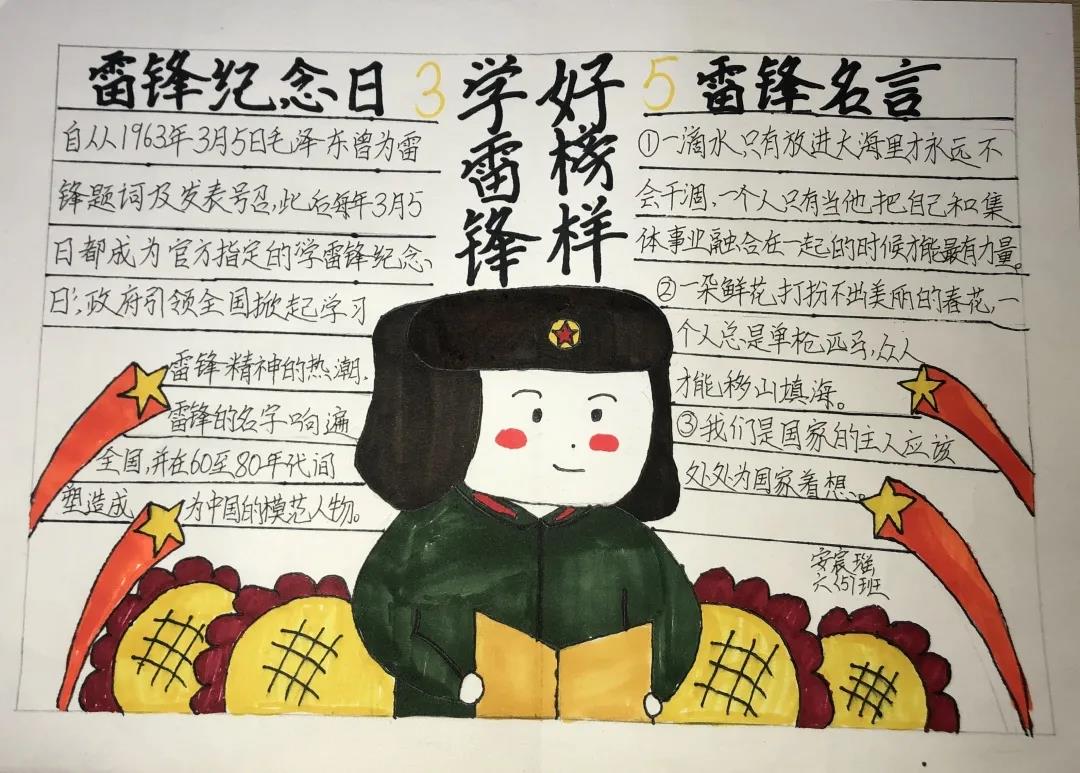 雷锋纪念日
自从1963年3月5日毛泽东曾为雷
锋题词及发表号召,此后每年3月5
日都成为官方指定的学雷锋纪念
日;政府引领全国掀起学习
雷锋精神的热潮.
雷锋的名字响遍
全国,并在60至80年代间
塑造成 为中国的模范人物。
3
学雷锋
好榜样
5
雷锋名言
①一滴水只有放进大海里才永远不
会干涸,一个人只有当他把自己和集
体事业融合在一起的时候才能最有力量。
②一朵鲜花打扮不出美丽的春花,一
个人总是单枪匹马,众人
才能移山填海。
③我们是国家的主人应该
处处为国家着想。
六(5)班